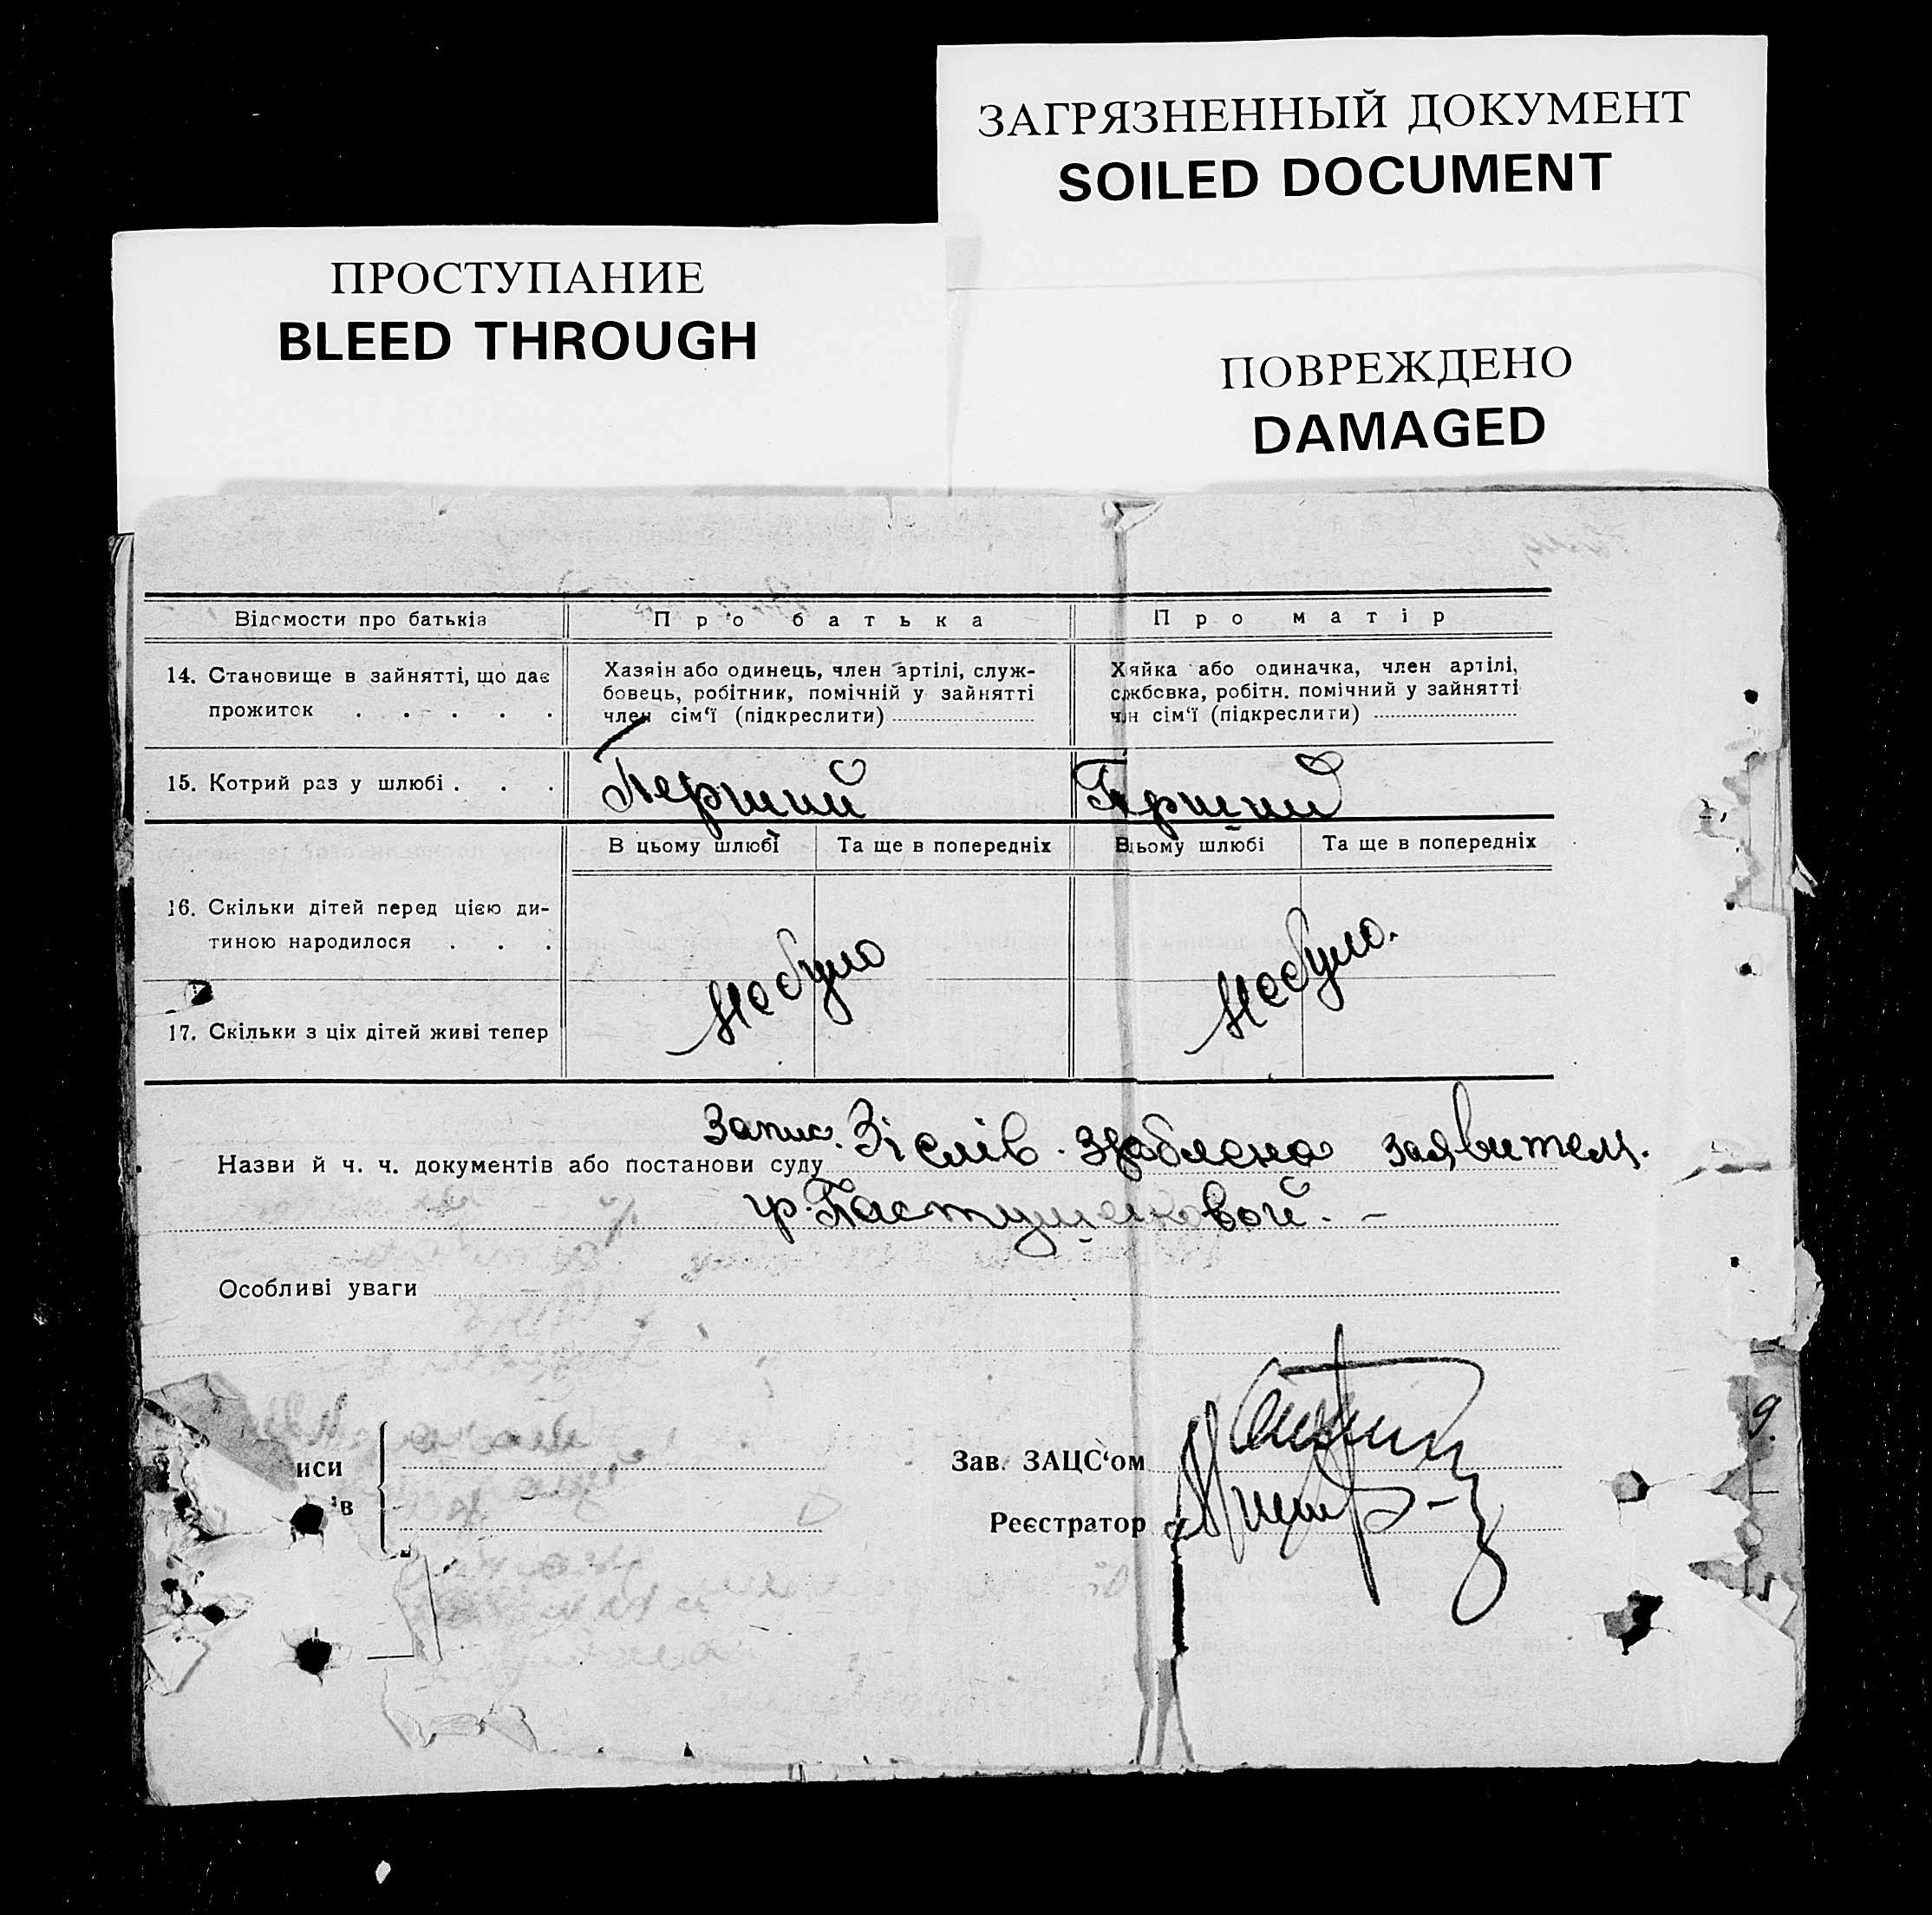 ЗАГРЯЗНЕННЫЙ ДОКУМЕНТ
SOILED DOCUMENT
ПРОСТУПАНИЕ
BLEED THROUGH
ПОВРЕЖДЕНО
DAMAGED
Відомости про батьків
Про батька
Про матір
14. Становище в зайнятті, що дає
прожиток . . . . .
Хазяін або одинець, член артілі, служ-
бовець, робітник, помічній у зайнятті
член сім‘ї (підкреслити)
Хяйка або одиначка, член артілі,
сжбовка, робітн. помічний у зайнятті
чн сім‘ї (підкреслити)
15. Котрий раз у шлюбі . . .
Перший
Прший
В цьому шлюбі
Та ще в попередніх
Вьому шлюбі
Та ще в попередніх
16. Скільки дітей перед цією ди-
тиною народилося . . .
17. Скільки з ціх дітей живі тепер
Не було
Не було.
Запис. Зі слів зроблено заявител.
Назви й ч. ч. документів або постанови суду
гр. Пастушенковой. –
Особливі уваги
иси
ів
Зав. ЗАЦС‘ом
Реєстратор
9.